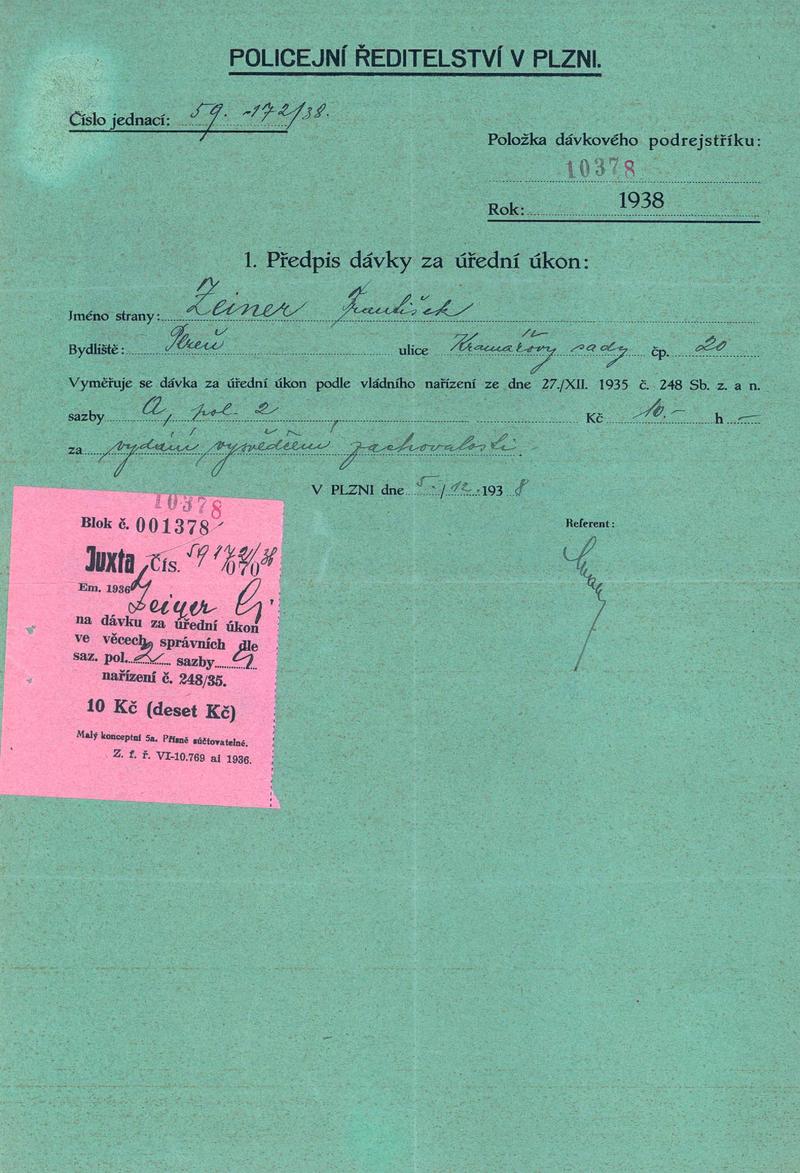 POLICEJNÍ ŘEDITELSTVÍ V PLZNI.
Číslo jednací: 59.-172/38.
Položka dávkového podrejstříku:
10378
Rok: 1938
1. Předpis dávky za úřední úkon:
Jméno strany: Zeiner František
Bydliště: Plzeň ulice Kramářovy sady čp. 20
Vyměřuje se dávka za úřední úkon podle vládního nařízení ze dne 27./XII. 1935 č. 248 Sb. z. a n.
sazby A, pol. 2 Kč 10.- h -
za vydání vysvědčení zachovalosti.
V PLZNI dne 5./12. 1938
Referent:
10378
Blok č. 001378
Juxta Čís. 59172/38
070
Em. 1936
Zeiner
na dávku za úřední úkon
ve věcech správních dle
saz. pol. 2 sazby
nařízení č. 248/35.
10 Kč (deset Kč)
Malý konceptní 5a. Přísně súčtovatelné.
Z. f. ř. VI-10.769 ai 1936.